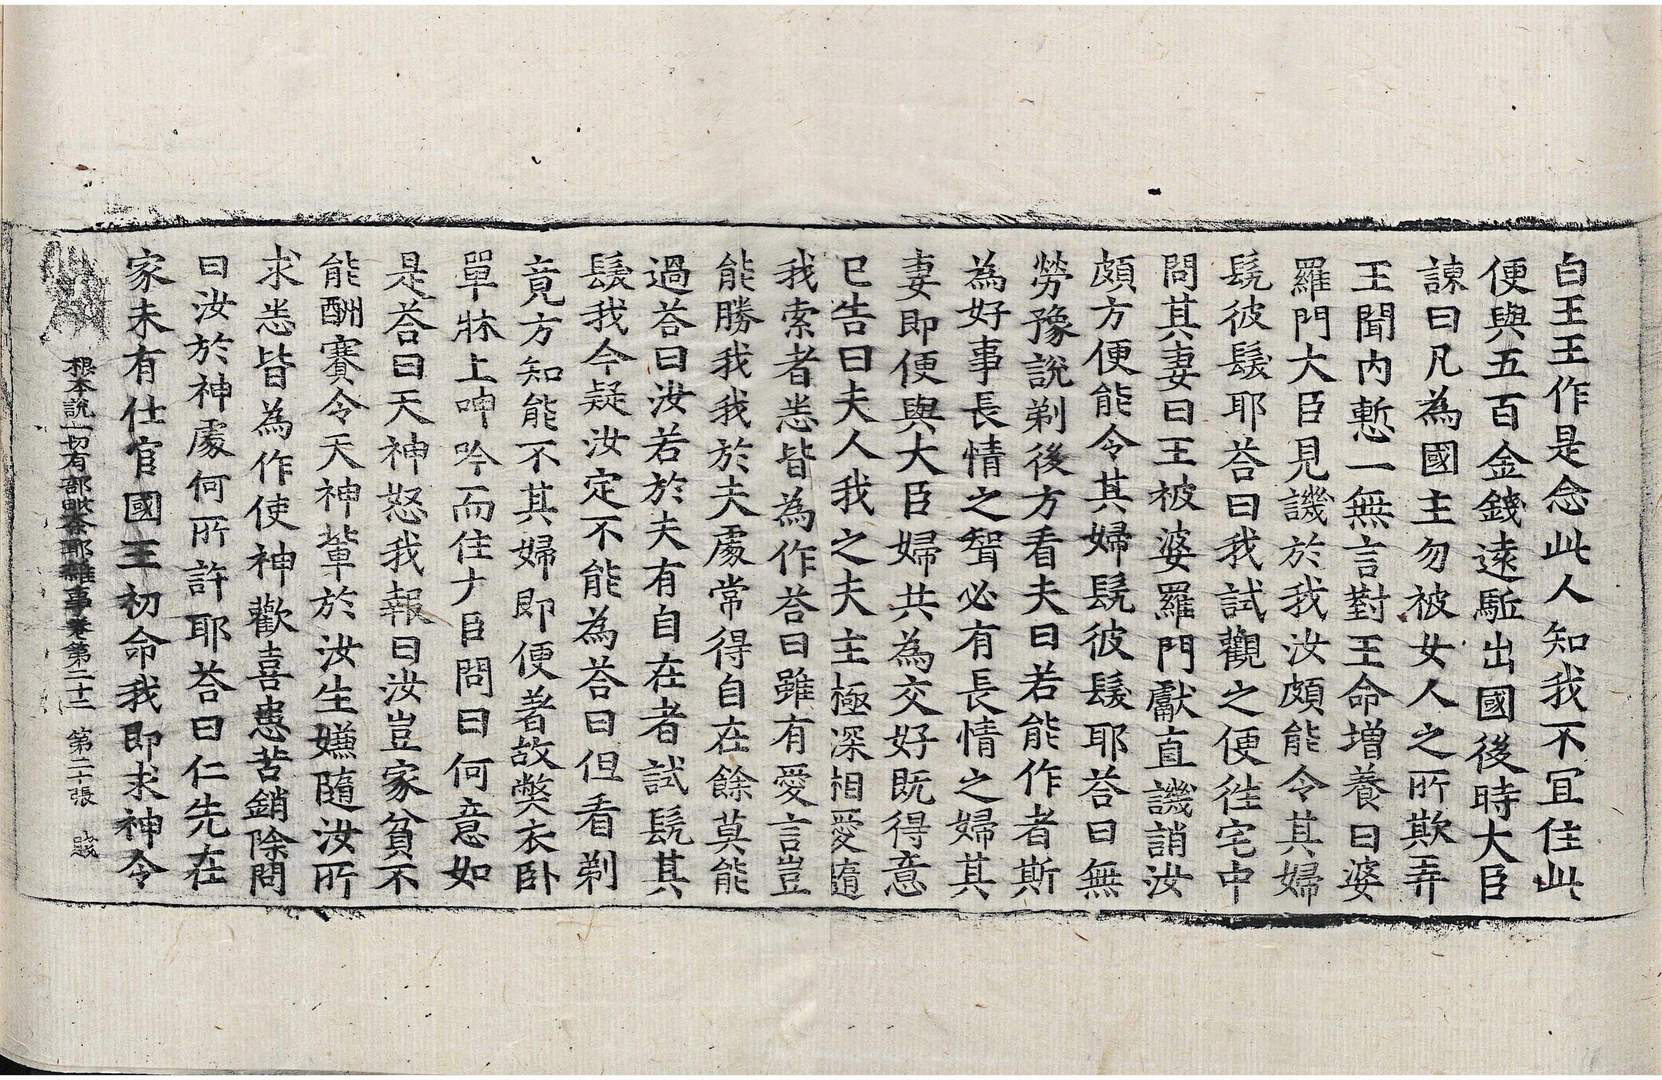 白王王作是念此人知我不冝住此
便與五百金錢遠駈出國後時大臣
諫曰凡為國主勿被女人之所欺弄
王聞内慙一無言對王命增養曰婆
羅門大臣見譏於我汝頗能令其婦
髡彼髮耶荅曰我試觀之便往宅中
問其妻曰王被婆羅門獻直譏誚汝
頗方便能令其婦髡彼髮耶荅曰無
勞豫說剃後方看夫曰若能作者斯
為好事長情之聟必有長情之婦其
妻即便與大臣婦共為交好既得意
已告曰夫人我之夫主極深相愛隨
我索者悉皆為作荅曰雖有愛言豈
能勝我我於夫處常得自在餘莫能
過荅曰汝若於夫有自在者試髡其
髮我今疑汝定不能為荅曰但看剃
竟方知能不其婦即便著故弊衣卧
單牀上呻吟而住大臣問曰何意如
是荅曰天神怒我報曰汝豈家貧不
能酬賽令天神輩於汝生嫌隨汝所
求悉皆為作使神歡喜患苦銷除問
曰汝於神處何所許耶荅曰仁先在
家未有仕官國王初命我即求神令
根本說一切有部毗奈耶雜事卷第二十二 第二十張